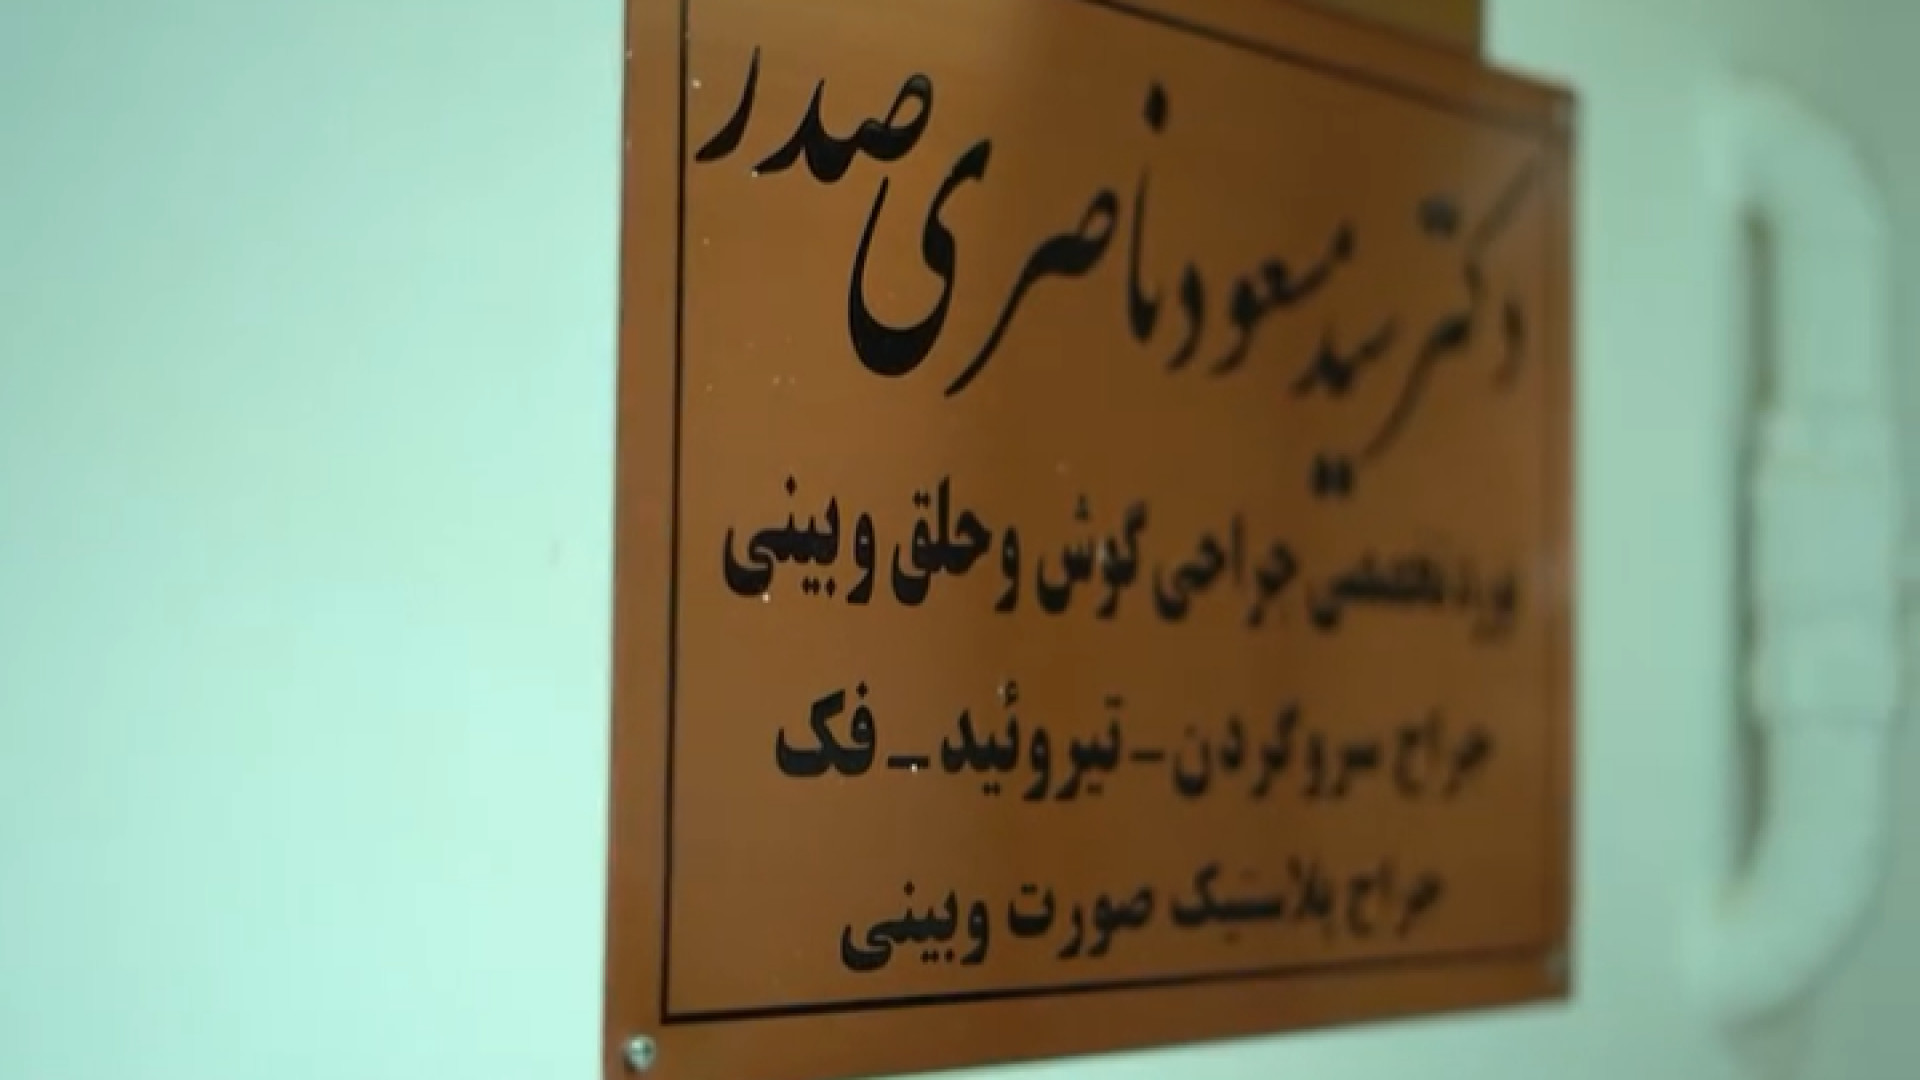 دکتر سید مسعود ناصری صدر
بورد تخصصی جراحی گوش و حلق و بینی
جراح سر و گردن - تیروئید - فک
جراح پلاستیک صورت و بینی